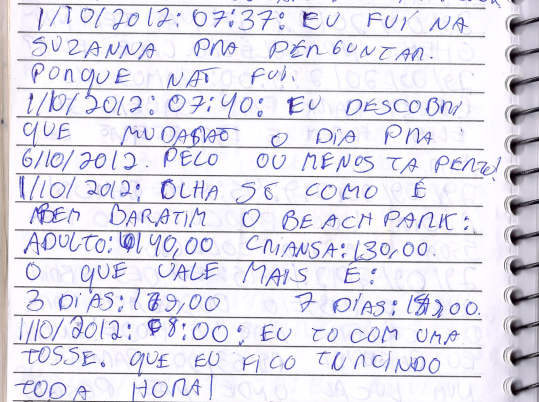 1/10/2012: 07:37: EU FUI NA
SUZANNA PRA PERGUNTAR.
PORQUE NAT FUI.
1/10/2012: 07:40: EU DESCOBRI
QUE MUDARAO O DIA PRA
6/10/2012. PELO OU MENOS TA PERTO!
1/10/2012: OLHA SE COMO É
BEM BARATIM O BEACH PARK:
ADULTO: 140,00 CRIANSA: 130,00
O QUE VALE MAIS É:
3 DIAS: 179,00 7 DIAS:
1/10/2012: 8:00: EU TO COM UMA
TOSSE. QUE EU FICO TURCINDO
TODA HORA!